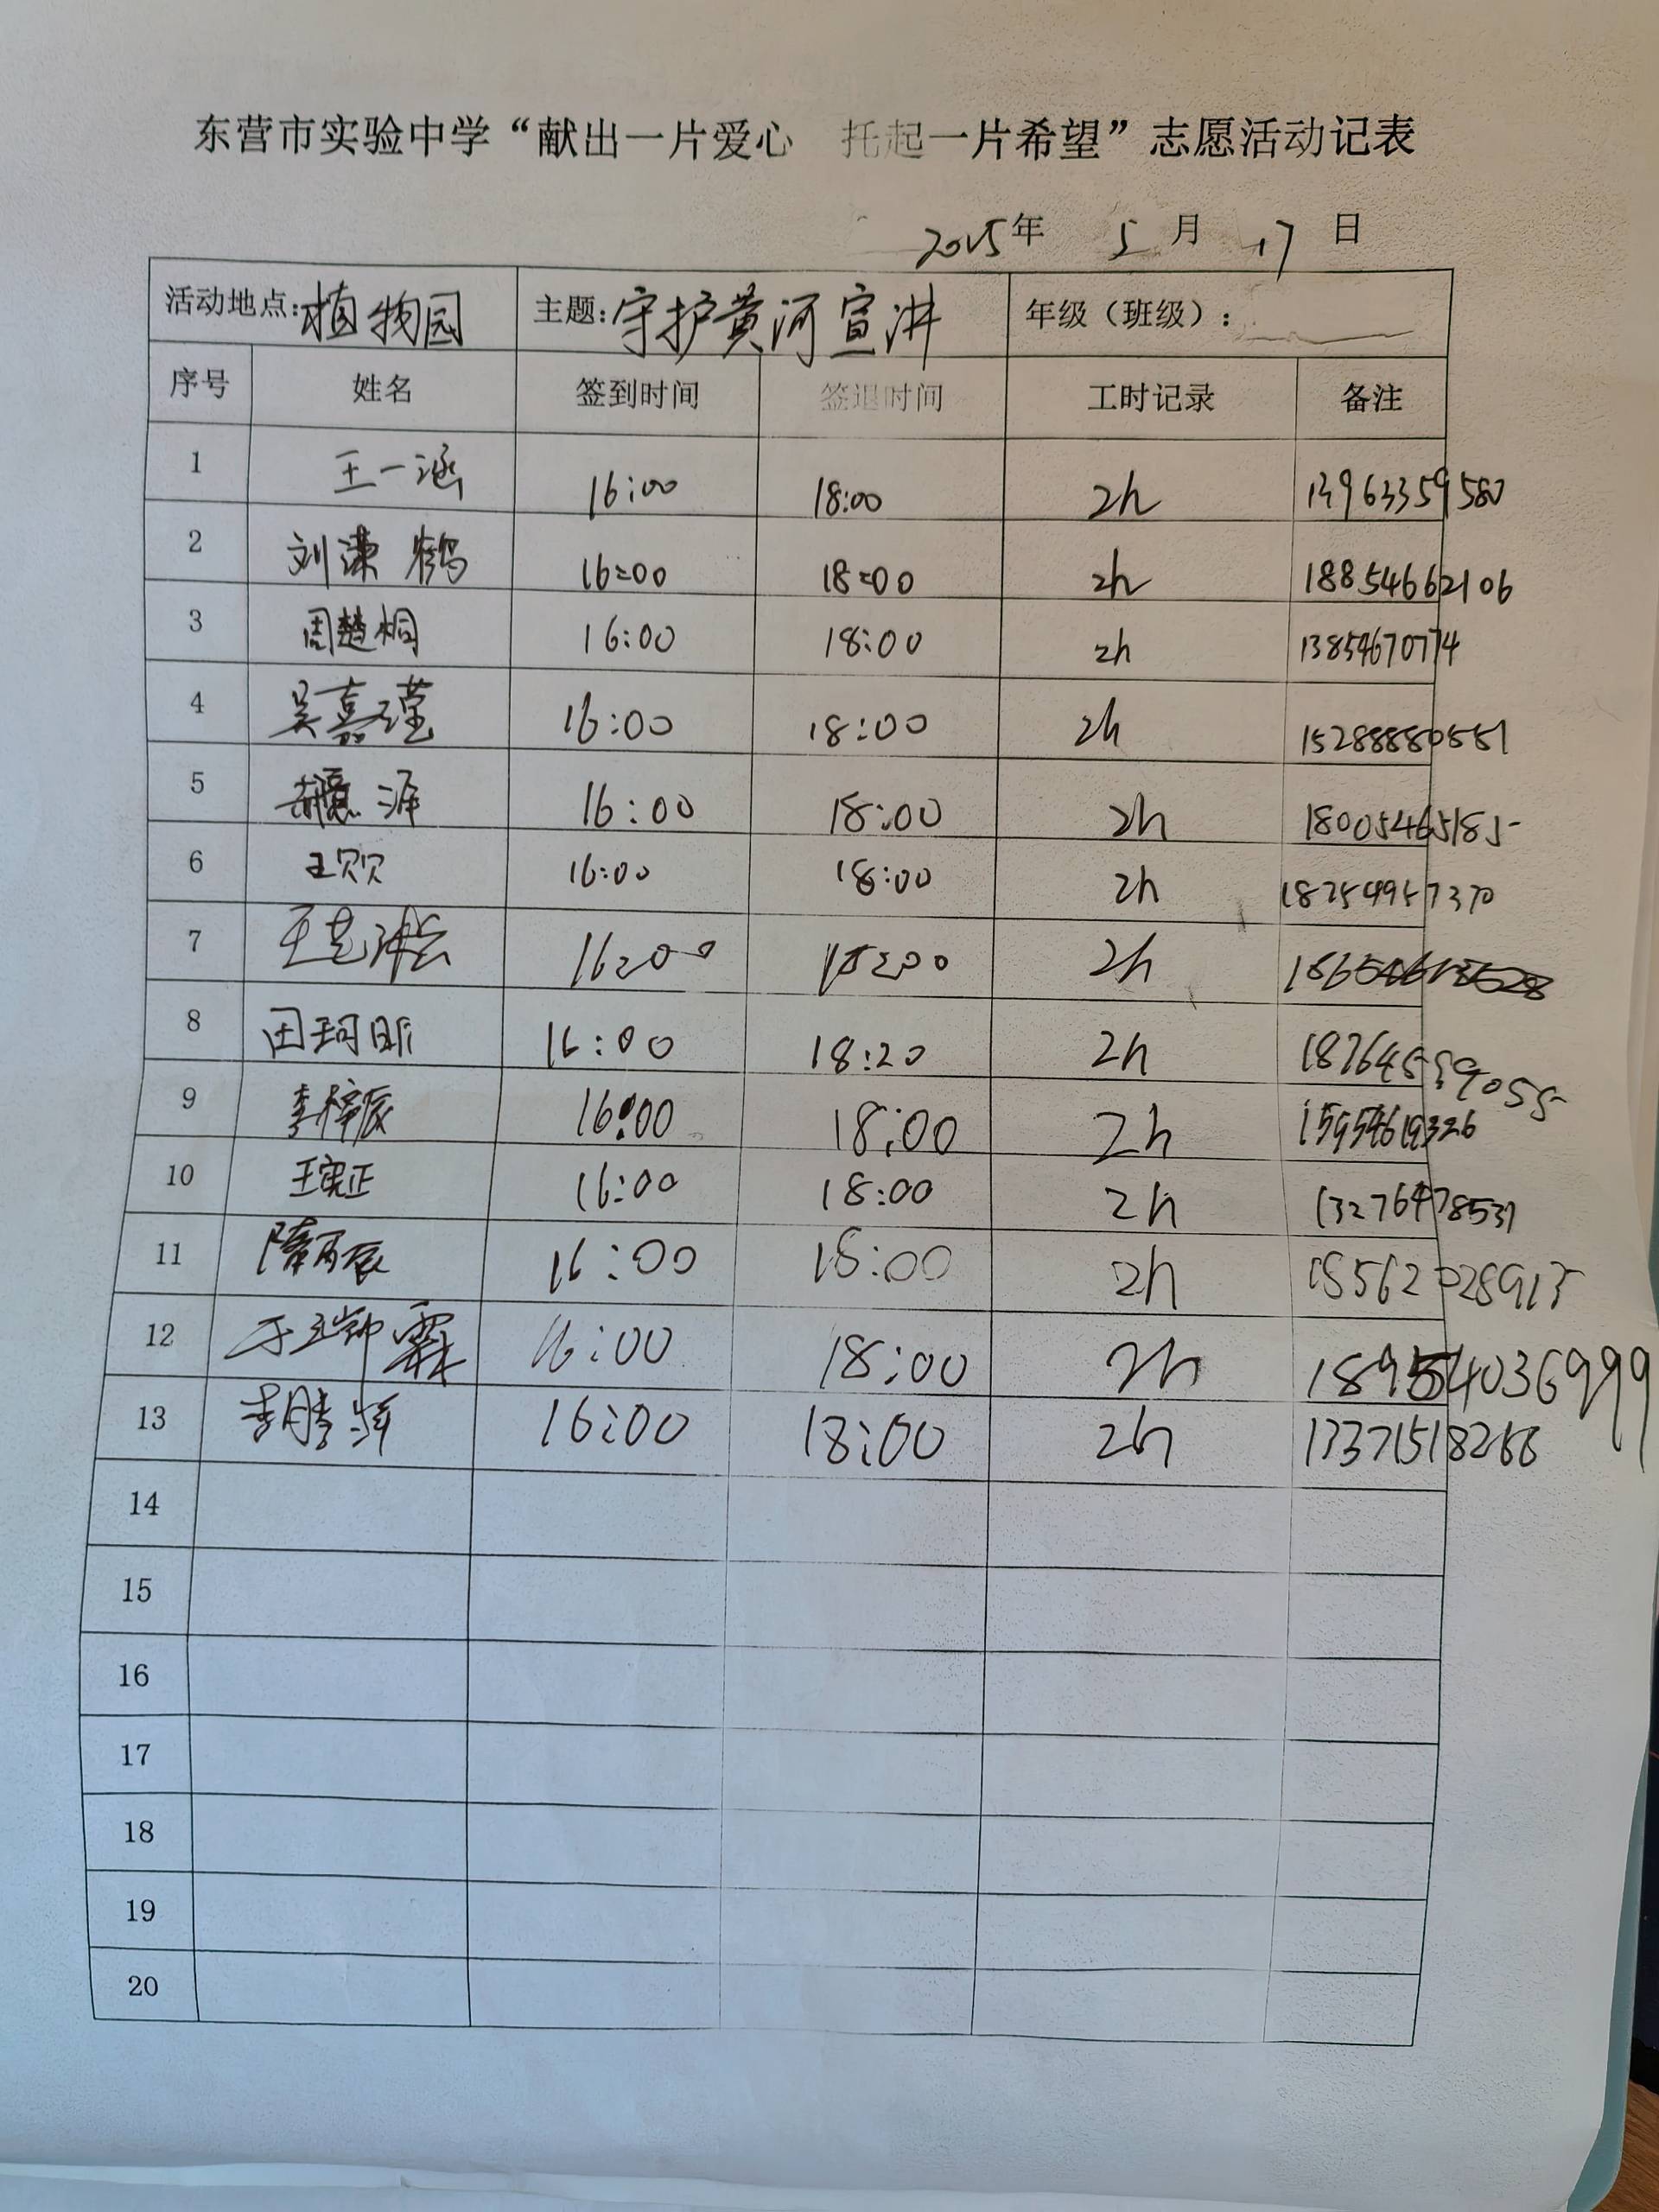 东营市实验中学“献出一片爱心 托起一片希望”志愿活动记表
2025年 5月 17日
活动地点:植物园 主题:守护黄河宣讲 年级（班级）:
序号 姓名 签到时间 签退时间 工时记录 备注
1 王一涵 16:00 18:00 2h 13963359580
2 刘潇鹤 16:00 18:00 2h 18854662106
3 周楚桐 16:00 18:00 2h 13854670774
4 吴嘉瑾 16:00 18:00 2h 15288880551
5 16:00 18:00 2h 18005465185
6 王贝贝 16:00 18:00 2h 182549957370
7 16:00 18:00 2h
8 田珂昕 16:00 18:20 2h 18764559055
9 李梓宸 16:00 18:00 2h 15954619326
10 王宪正 16:00 18:00 2h 13276478537
11 隋丙辰 16:00 18:00 2h 18562028913
12 于瑞霖 16:00 18:00 2h 18954036999
13 李腾泽 16:00 18:00 2h 13371518266
14
15
16
17
18
19
20